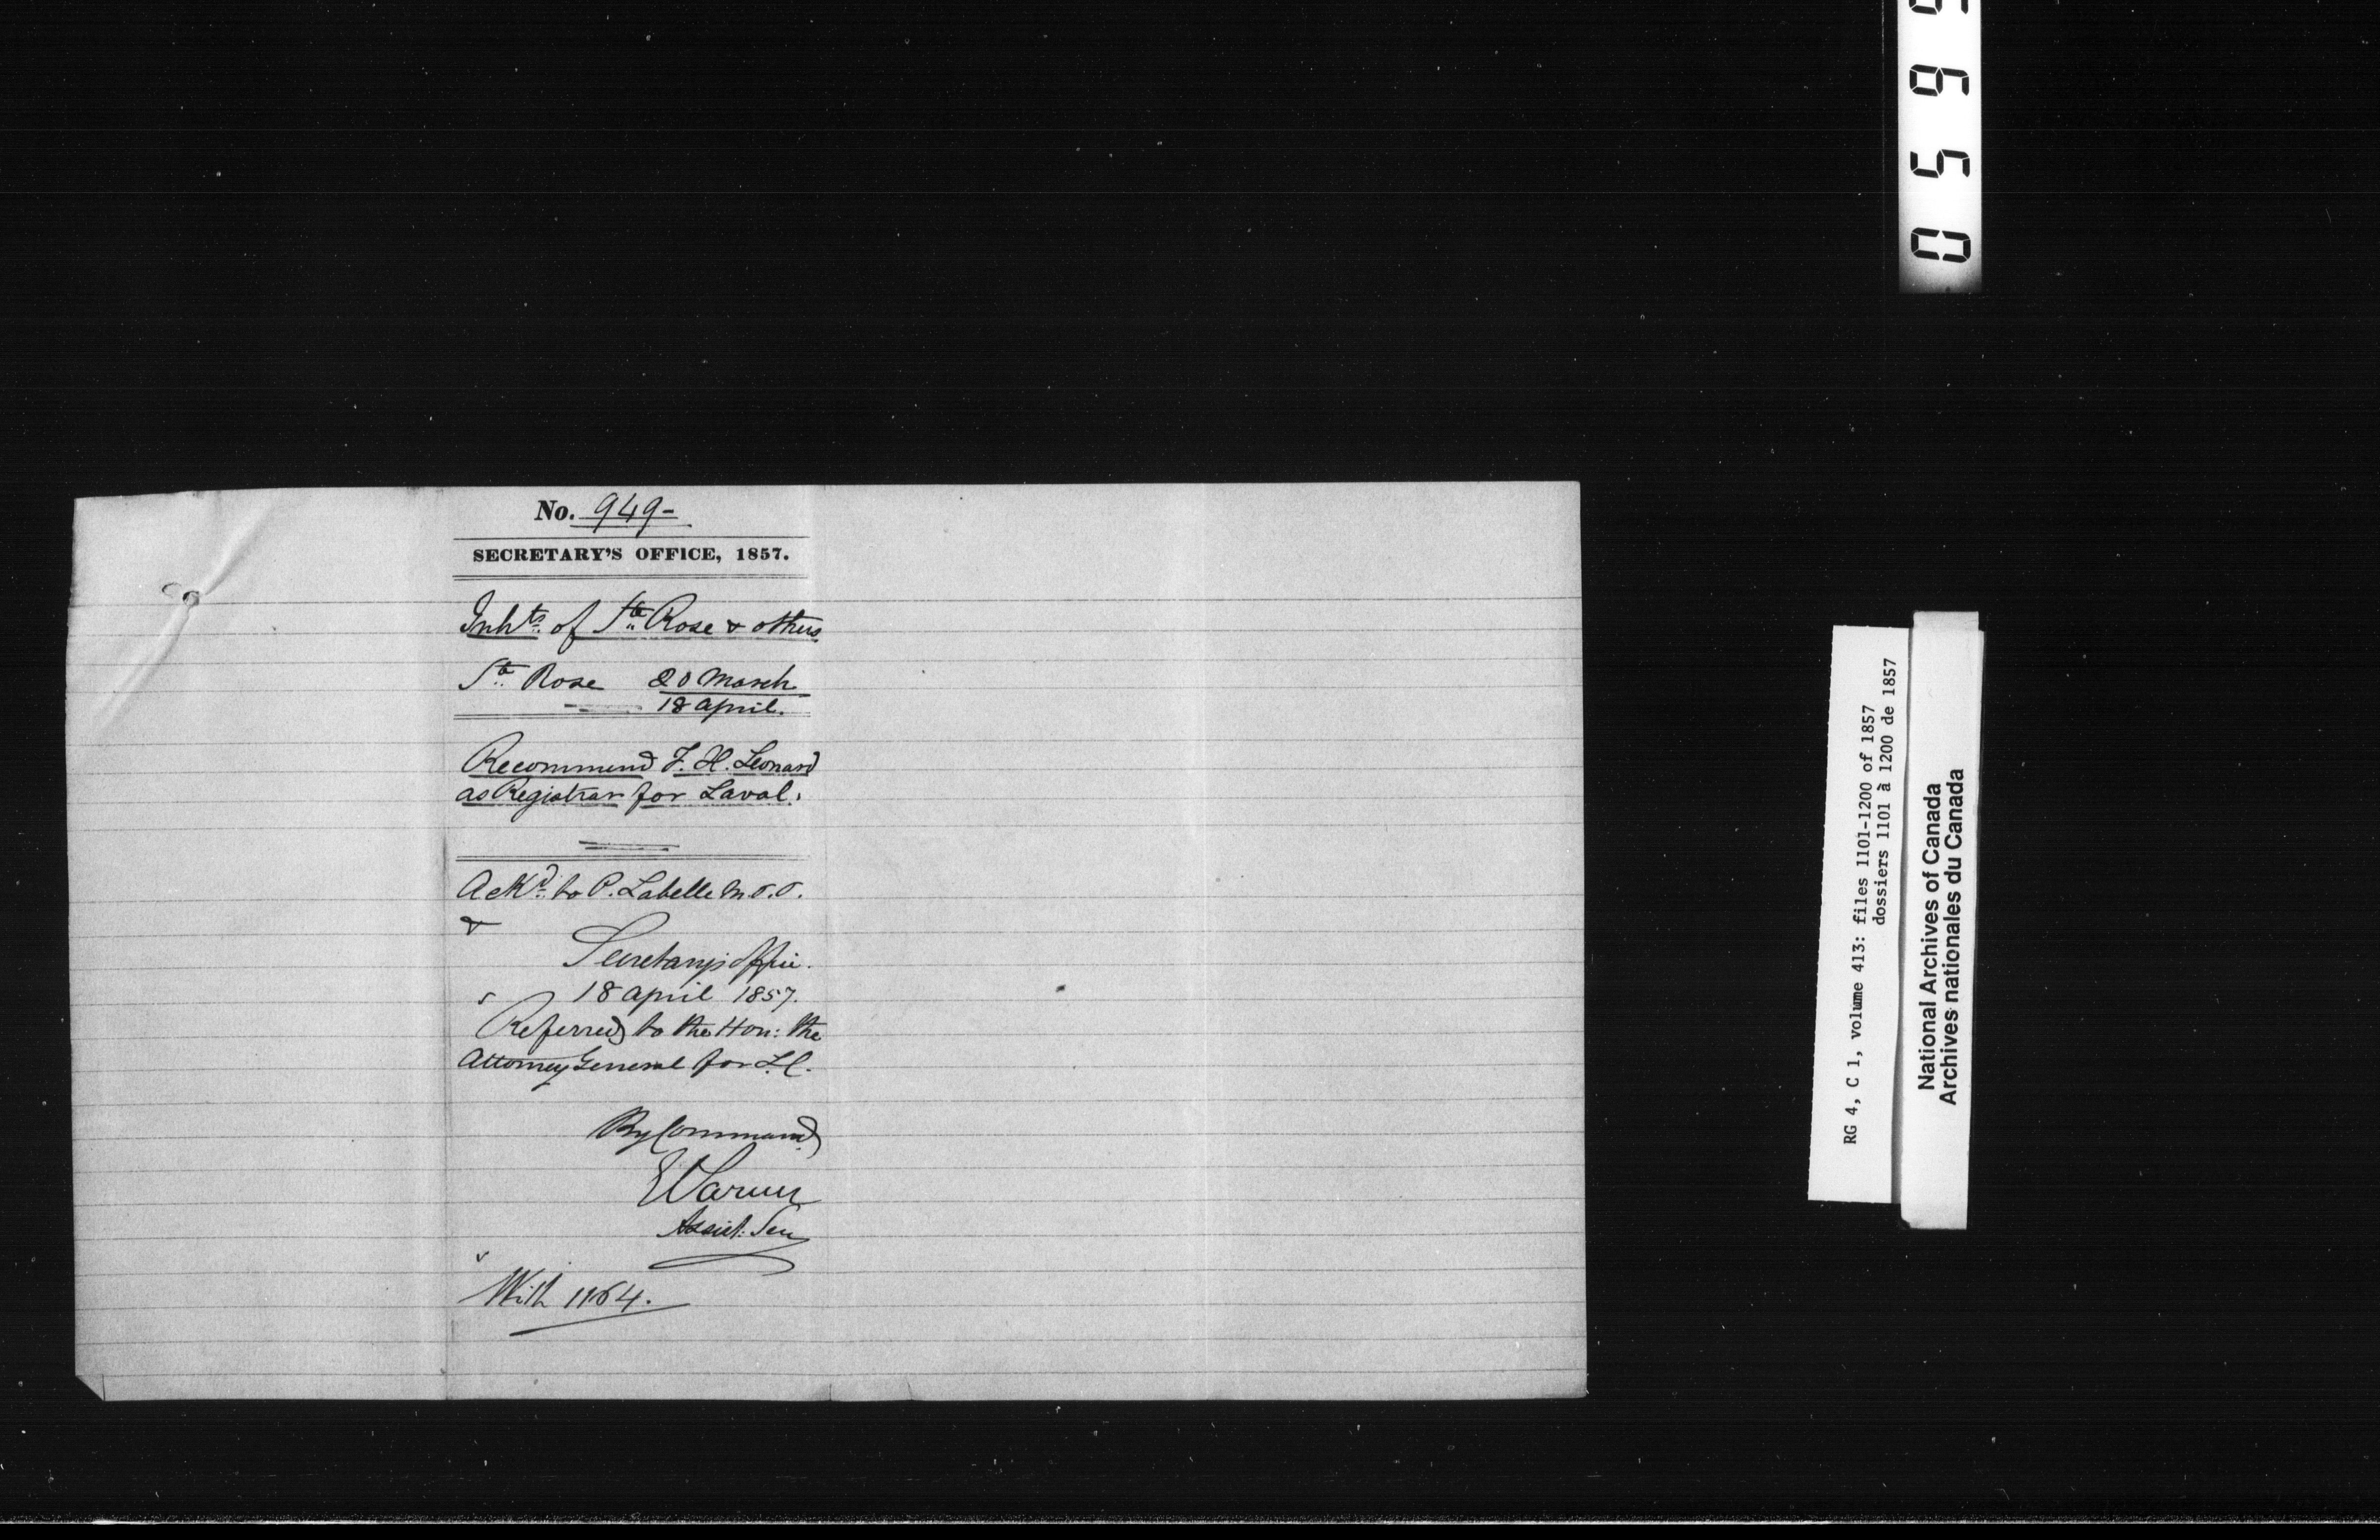 No. 949-
SECRETARY'S OFFICE, 1857.
Inhts. of Ste. Rose & others
Ste. Rose 20 March
18 April.
Recommend F. H. Leonard
as Registrar for Laval.
Ackd. to P. Labelle M.P.P.
&
Secretary's Office.
18 April 1857.
Referred to the Hon: the
Attorney General for L.C.
By Command
Assist: Secy
With 1164.
0 5 9 5
RG 4, C 1, volume 413: files 1101-1200 of 1857
dossiers 1101 à 1200 de 1857
National Archives of Canada
Archives nationales du Canada